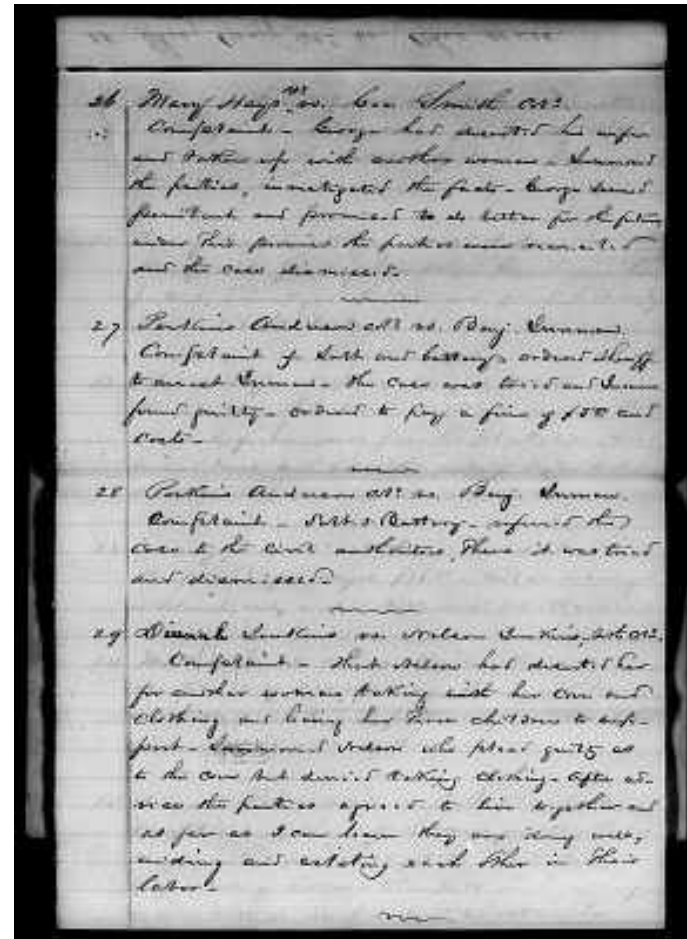 26 Mary Hays vs. Geo Smith
Complaint - George had deserted his wife
and taken up with another woman - Summoned
the parties, investigated the facts - George seemed
penitent and promised to do better for the future
under this promise the parties were reconciled
and the case dismissed.
27 Perkins Andrews vs. Benj. Inman.
Complaint of Salt and battery - ordered Sheriff
to arrest Inman - the case was tried and Inman
found guilty - ordered to pay a fine of and
costs -
28 Perkins Andrews vs. Benj. Inman.
Complaint - Battery - referred the
case to the civil authorities, there it was tried
and dismissed
29 Dinah Jenkins vs. Nelson Jenkins,
Complaint - that Nelson had deserted her
for another woman taking with her corn and
clothing and leaving her three children to sup-
port - Summoned Nelson who plead guilty as
to the corn but denied taking clothing - After ad-
vice the parties agreed to live together and
as far as I can learn they are doing well,
aiding and assisting each other in their
labor -